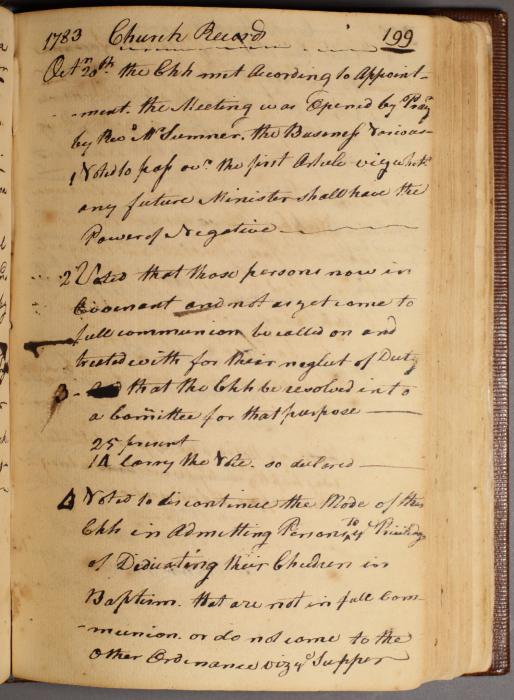 1783 Church Record 199
Octr 20th the Chh met According to Appoint-
-ment. the Meeting was Opened by Pray
by Revd Mr Sumner. the Business Various
1 Voted to pass ovr the first Article viz whethr
any future Minister shall have the
Power of Negative
2 Voted that those persons now in
Covenant and not as yet come to
full communion be called on and
treated with for their neglect of Duty
3 - that the Chh be resolved into
a Committee for that purpose
25 present
14 Carry the Vote. so declared
4 Voted to discontinue the Mode of this
Chh in Admitting Persons to ye Privileg
of Dedicating their Children in
Baptism. that are not in full Com-
-munion. or do not come to the
Other Ordinance viz ye Supper